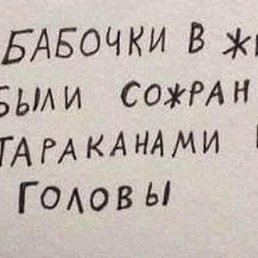 БАБОЧКИ В
БЫЛИ СОЖРАН
ТАРАКАНАМИ
ГОЛОВЫ